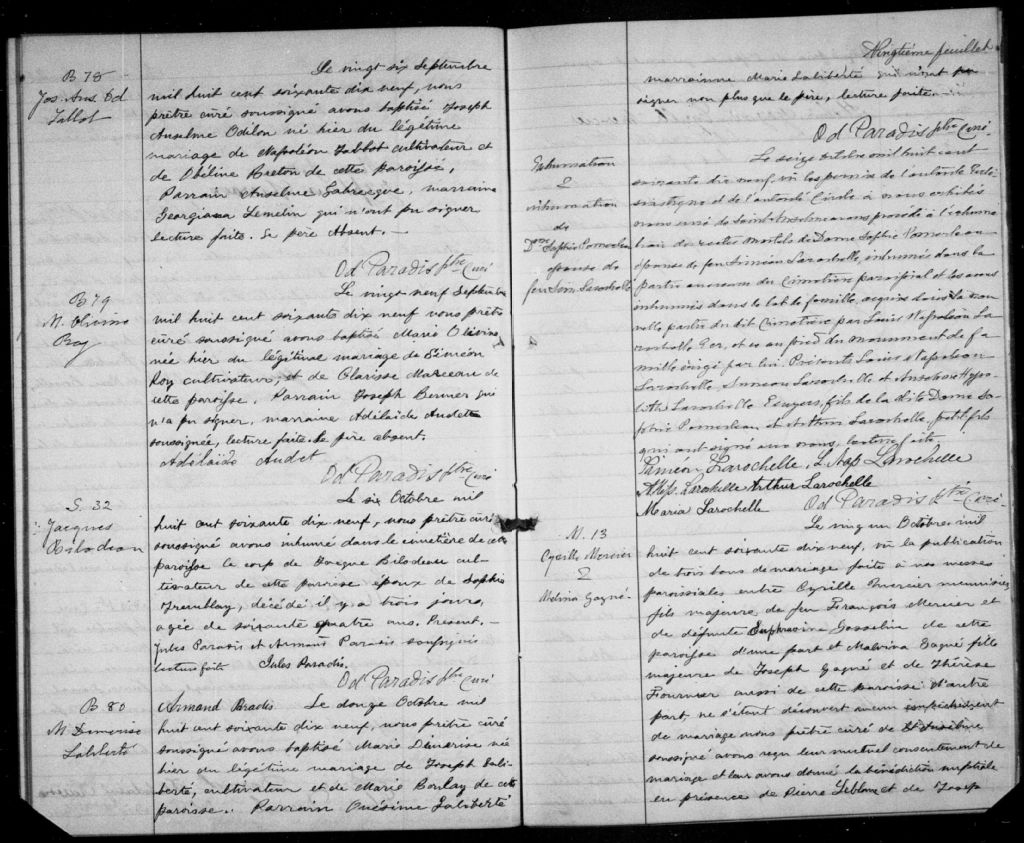 B 78
Jos. Ans. Od
Talbot
Le vingt six Septembre
mil huit cent soixante dix neuf, nous
prêtre curé soussigné avons baptisé Joseph
Anselme Odilon né hier du légitime
mariage de Napoléon Talbot cultivateur et
de Obéline Breton de cette paroisse,
Parrain Anselme Labrecque, marraine
Georgiana Lemelin qui n'ont pu signer
lecture faite. Le père Absent. —
Od Paradis ptre Curé
B 79
M. Olivine
Roy
Le vingt neuf Septembre
mil huit cent soixante dix neuf nous prêtre
curé soussigné avons baptisé Marie Olivine
née hier du légitime mariage de Siméon
Roy cultivateur, et de Clarisse Marceau de
cette paroisse, Parrain Joseph Bernier qui
n'a pu signer, marraine Adélaïde Audette
soussignée, lecture faite. Le père absent.
Adélaïde Audet
Od Paradis ptre Curé
S. 32
Jacques
Bilodeau
Le six Octobre mil
huit cent soixante dix neuf, nous prêtre curé
soussigné avons inhumé dans le cimetière de cette
paroisse le corps de Jacques Bilodeau cul-
tivateur de cette paroisse époux de Sophie
Tremblay, décédé il y a trois jours,
agée de soixante quatre ans. Present. —
Jules Paradis et Armand Paradis soussignés
lecture faite Jules Paradis.
Od Paradis ptre Curé
B 80
M Dimerise
Laliberté
Armand Pradis Le douze Octobre mil
huit cent soixante dix neuf, nous prêtre curé
soussigné avons baptisé Marie Dimerise née
hier du légitime mariage de Joseph Lali-
berté, cultivateur et de Marie Boulay de cette
paroisse. Parrain Onésime Laliberté
Vingtième feuillet
marrainne Marie Laliberté qui n'ont pu
signer non plus que le père, lecture faite.
Od Paradis ptre Curé
Exhumation
&
inhumation
de
Dme Sophie Pomerleau
épouse de
feu Sim. Larochelle
Le seize octobre mil huit cent
soixante dix neuf, vu les permis de l'autorité Ecclé-
siastique et de l'autorité Civile à nous exhibés
nous curé de Saint-Anselme avons procédé à l'exhuma-
tion des restes mortels de Dame Sophie Pomerleau
épouse de feu Siméon Larochelle, inhumés dans la
partie ancienne du Cimetière paroissial et les avons
inhumés dans le lot de famille, acquis dans la nou-
velle partie du dit Cimetière par Louis Napoléon La-
rochelle Ecr, et ce au pied du monument de fa-
mille érigé par lui. Présents Louis Napoléon
Larochelle, Siméon Larochelle et Anselme Hyppo-
lite Larochelle Ecuyers, fils de la dite Dame So-
phie Pomerleau, et Arthur Larochelle, petit fils
qui ont signé avec nous, lecture faite.
Siméon Larochelle, L. Nap Larochelle
A Hip. Larochelle Arthur Larochelle
Maria Larochelle Od Paradis ptre Curé
M. 13
Cyrille Mercier
&
Malvina Gagné
Le vingt un Octobre mil
huit cent soixante dix neuf, vu la publication
de trois bans de mariage faite à nos messes
paroissiales entre Cyrille Mercier meunier,
fils majeure, de feu François Mercier et
de défunte Euphrosine Gosselin de cette
paroisse d'une part et Malvina Gagné fille
majeure de Joseph Gagné et de Thérèse
Fournier aussi de cette paroisse d'autre
part, ne s'étant découvert aucun empêchement
de mariage nous prêtre curé de St Anselme
soussigné avons reçu leur mutuel consentement de
mariage et leur avons donné la bénédiction nuptiale
en présence de Pierre Leblanc et de Joseph